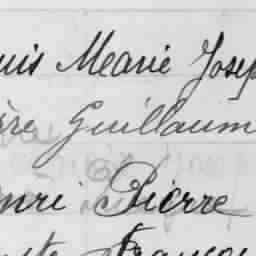 uis Marie Josep
rre Guillaum
nri Pierre
ste Françoi